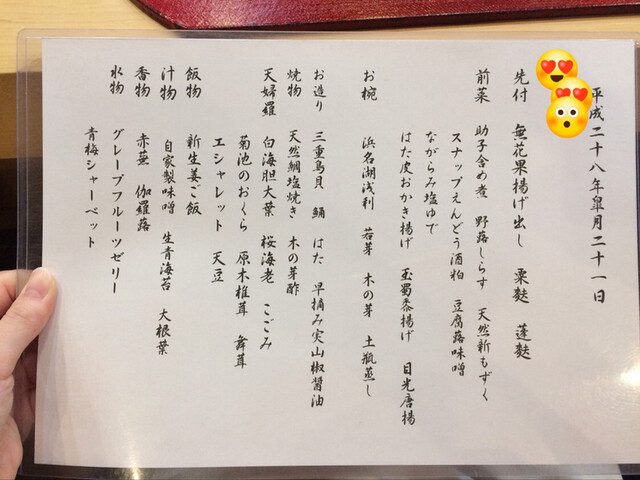 平成二十八年皐月二十一日
先付 無花果揚げ出し 粟麩 蓬麩
前菜 助子含め煮 野蕗しらす 天然新もずく
スナップえんどう酒粕 豆腐蕗味噌
ながらみ塩ゆで
はた皮おかき揚げ 玉蜀黍揚げ 目光唐揚
お椀 浜名湖浅利 若芽 木の芽 土瓶蒸し
お造り 三重鳥貝 鯒 はた 早摘み実山椒醤油
焼物 天然鯛塩焼き 木の芽酢
天婦羅 白海胆大葉 桜海老 こごみ
菊池のおくら 原木椎茸 舞茸
エシャレット 天豆
飯物 新生姜ご飯
汁物 自家製味噌 生青海苔 大根葉
香物 赤蕪 伽羅蕗
水物 グレープフルーツゼリー
青梅シャーベット